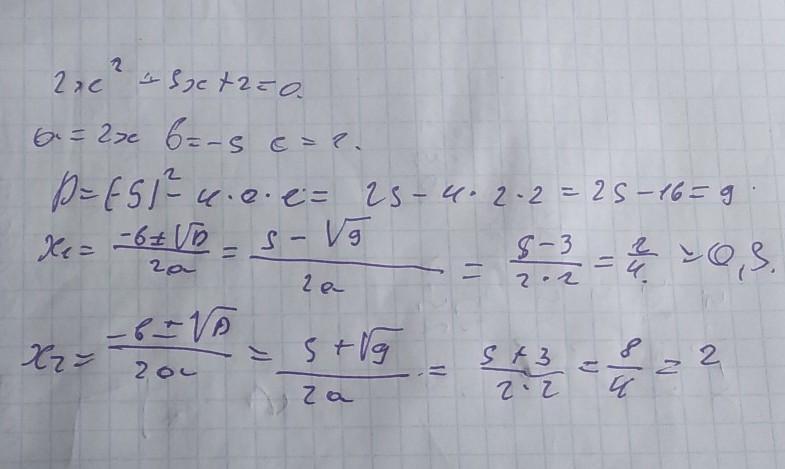 2x² - 5x + 2 = 0.
a = 2x б = -5 c = 2.
D = (-5)² - 4 · a · c = 25 - 4 · 2 · 2 = 25 - 16 = 9.
x₁ = (-б ± √D) / 2a = (5 - √9) / 2a = (5 - 3) / (2 · 2) = 2/4 = 0,5.
x₂ = (-б ± √D) / 2a = (5 + √9) / 2a = (5 + 3) / (2 · 2) = 8/4 = 2